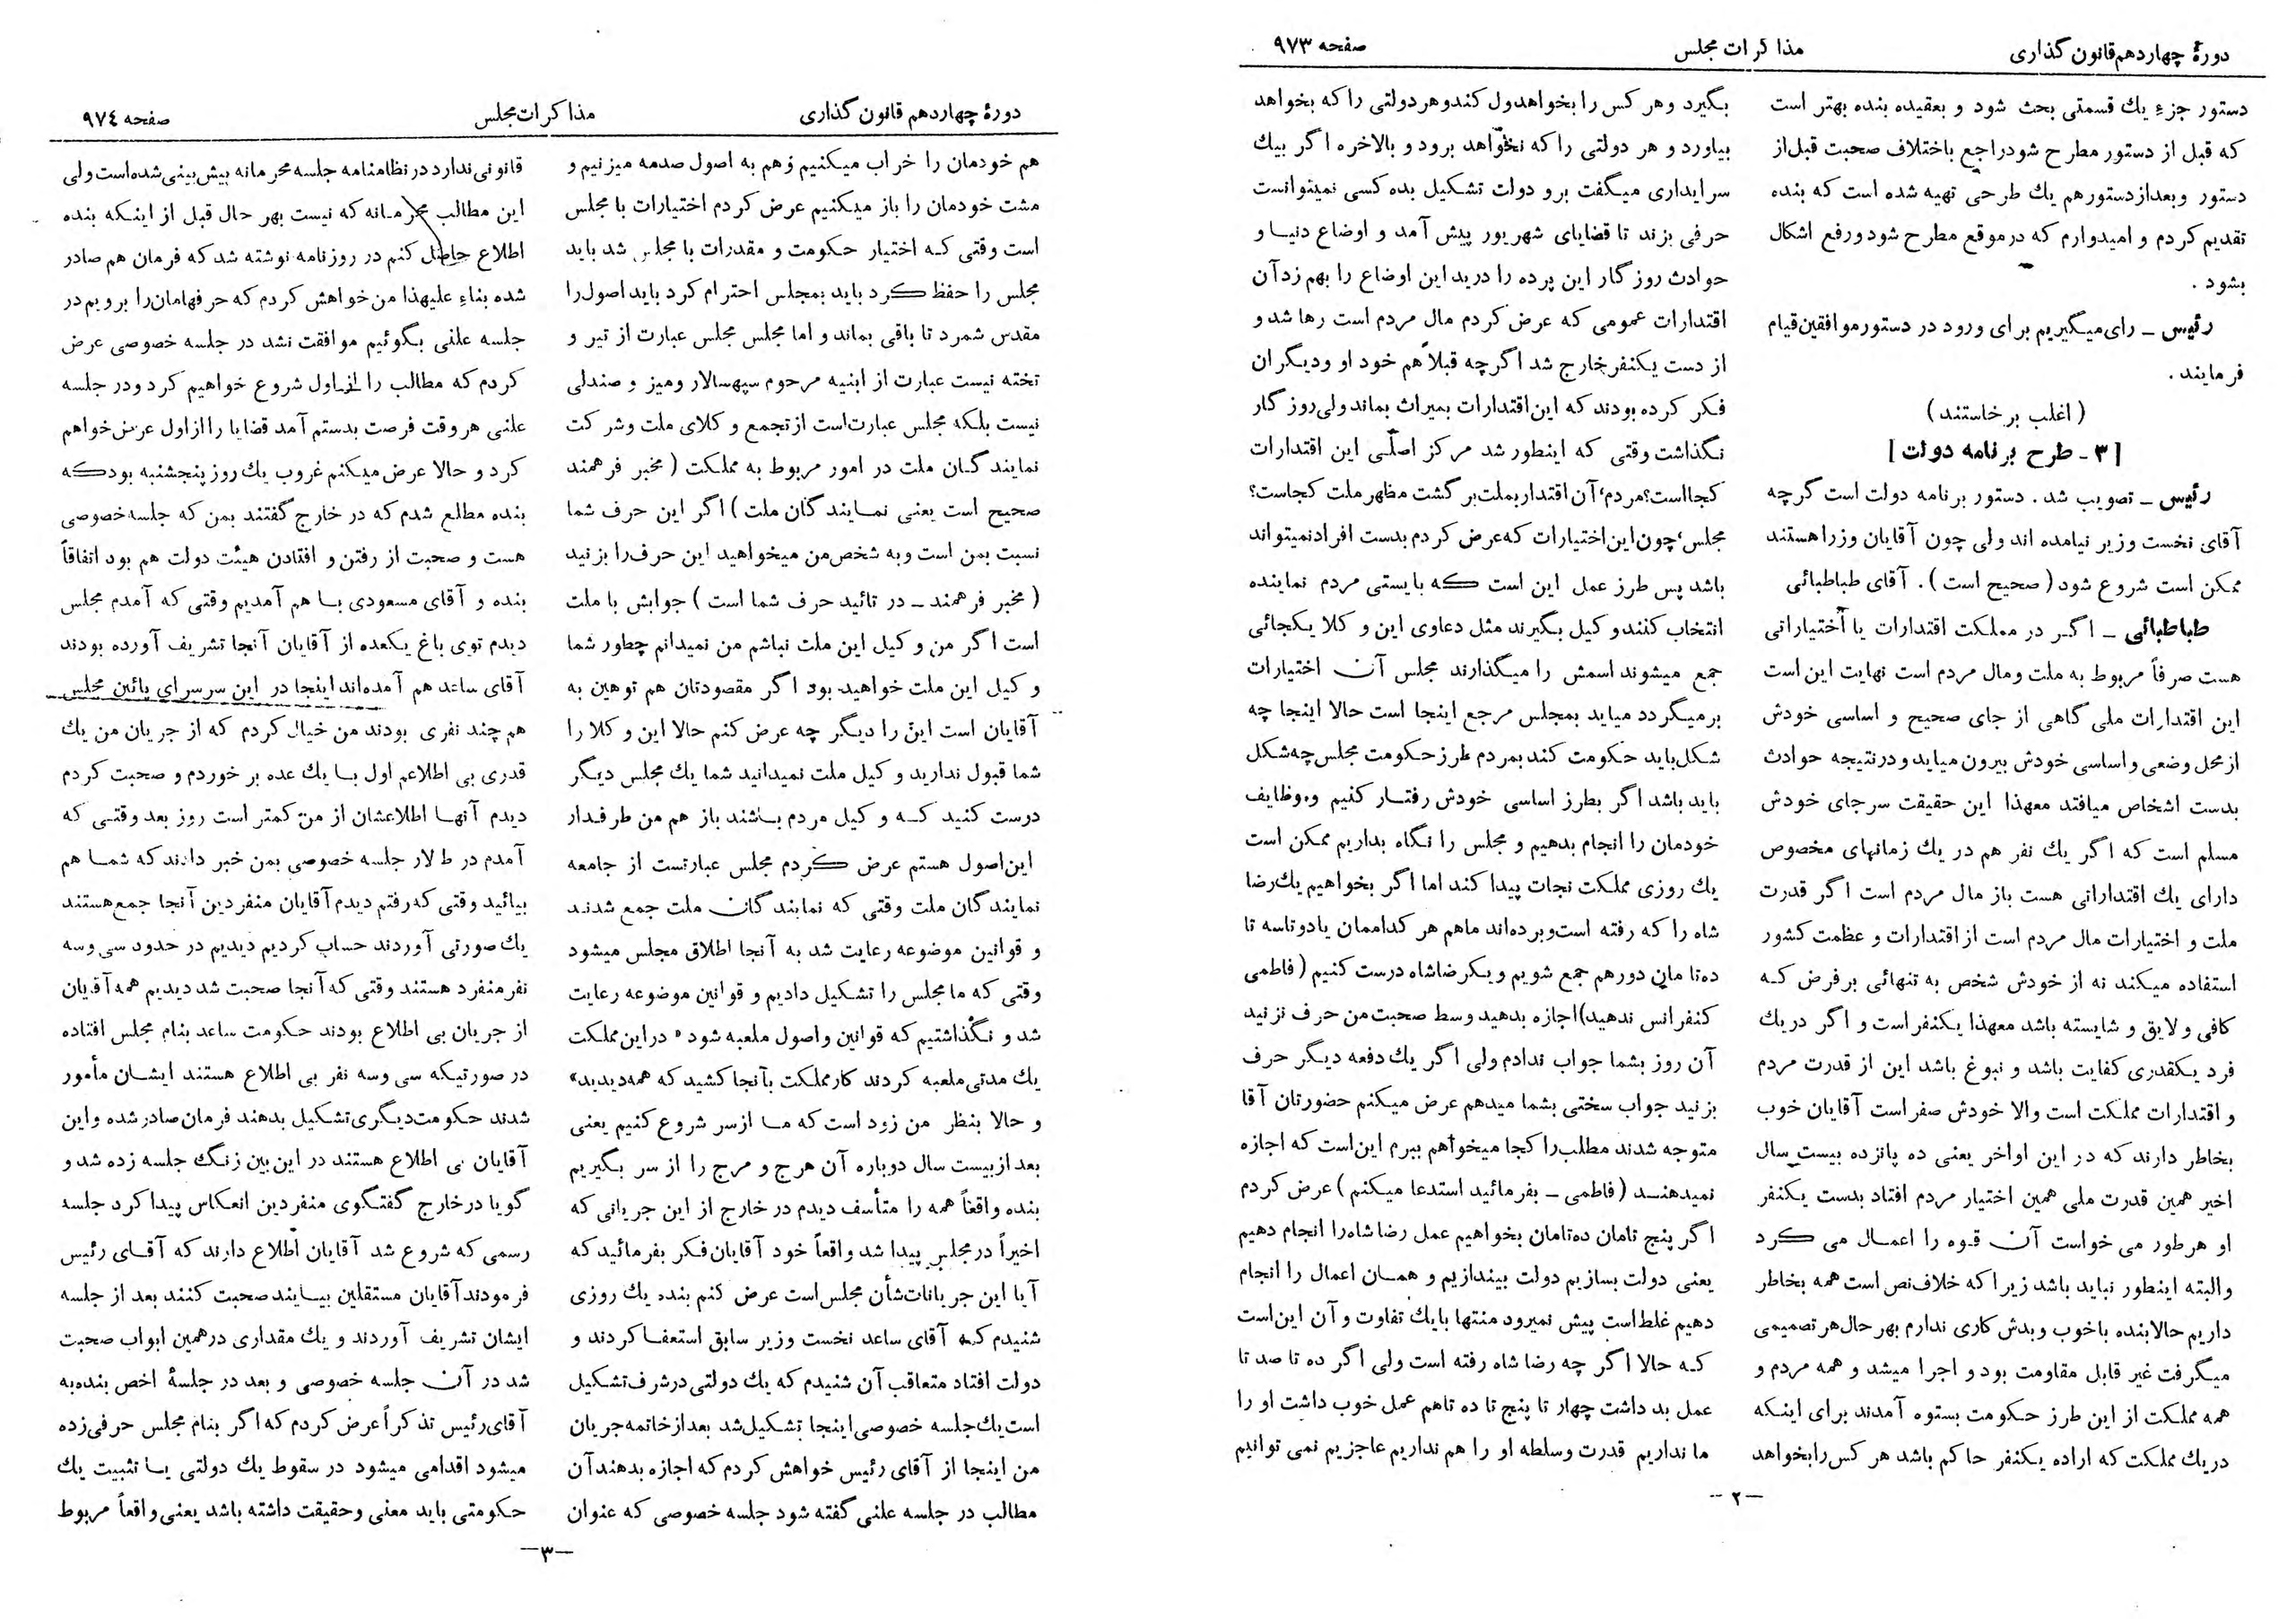 دورهٔ چهاردهم قانون گذاری
مذاکرات مجلس
صفحه ۹۷۳
دستور جزء یك قسمتی بحث شود و بعقیده بنده بهتر است
که قبل از دستور مطرح شود راجع باختلاف صحبت قبل از
دستور وبعد از دستور هم یك طرحی تهیه شده است که بنده
تقدیم کردم و امیدوارم که در موقع مطرح شود و رفع اشکال
بشود .
رئیس ــ رای میگیریم برای ورود در دستور موافقین قیام
فرمایند .
( اغلب برخاستند )
[ ۳ - طرح برنامه دولت ]
رئیس ــ تصویب شد . دستور برنامه دولت است گرچه
آقای نخست وزیر نیامده اند ولی چون آقایان وزرا هستند
ممکن است شروع شود ( صحیح است ) . آقای طباطبائی
طباطبائی ــ اگر در مملکت اقتدارات یا اختیاراتی
هست صرفاً مربوط به ملت ومال مردم است نهایت این است
این اقتدارات ملی گاهی از جای صحیح و اساسی خودش
از محل وضعی و اساسی خودش بیرون میاید و در نتیجه حوادث
بدست اشخاص میافتد معهذا این حقیقت سر جای خودش
مسلم است که اگر یك نفر هم در یك زمانهای مخصوص
دارای یك اقتداراتی هست باز مال مردم است اگر قدرت
ملت و اختیارات مال مردم است از اقتدارات و عظمت کشور
استفاده میکند نه از خودش شخص به تنهائی بر فرض که
کافی و لایق و شایسته باشد معهذا یکنفر است و اگر در یك
فرد یکقدری کفایت باشد و نبوغ باشد این از قدرت مردم
و اقتدارات مملکت است والا خودش صفر است آقایان خوب
بخاطر دارند که در این اواخر یعنی ده پانزده بیست سال
اخیر همین قدرت ملی همین اختیار مردم افتاد بدست یکنفر
او هر طور می خواست آن قوه را اعمال می کرد
والبته اینطور نباید باشد زیرا که خلاف نص است همه بخاطر
داریم حالا بنده باخوب و بدش کاری ندارم بهر حال هر تصمیمی
میگرفت غیر قابل مقاومت بود و اجرا میشد و همه مردم و
همه مملکت از این طرز حکومت بستوه آمدند برای اینکه
در یك مملکت که اراده یکنفر حاکم باشد هر کس را بخواهد
بگیرد و هر کس را بخواهد ول کند و هر دولتی را که بخواهد
بیاورد و هر دولتی را که نخواهد برود و بالاخره اگر بیك
سرایداری میگفت برو دولت تشکیل بده کسی نمیتوانست
حرفی بزند تا قضایای شهریور پیش آمد و اوضاع دنیا و
حوادث روزگار این پرده را درید این اوضاع را بهم زد آن
اقتدارات عمومی که عرض کردم مال مردم است رها شد و
از دست یکنفر خارج شد اگرچه قبلاً هم خود او و دیگران
فکر کرده بودند که این اقتدارات بمیراث بماند ولی روزگار
نگذاشت وقتی که اینطور شد مرکز اصلی این اقتدارات
کجا است؟ مردم، آن اقتدار بملت برگشت مظهر ملت کجاست؟
مجلس، چون این اختیارات که عرض کردم بدست افراد نمیتواند
باشد پس طرز عمل این است که بایستی مردم نماینده
انتخاب کنند وکیل بگیرند مثل دعاوی این وکلا یکجائی
جمع میشوند اسمش را میگذارند مجلس آن اختیارات
برمیگردد میاید بمجلس مرجع اینجا است حالا اینجا چه
شکل باید حکومت کند بمردم طرز حکومت مجلس چه شکل
باید باشد اگر بطرز اساسی خودش رفتار کنیم و وظایف
خودمان را انجام بدهیم و مجلس را نگاه بداریم ممکن است
یك روزی مملکت نجات پیدا کند اما اگر بخواهیم یك رضا
شاه را که رفته است و برده‌اند ماهم هر کداممان یا دو تا سه تا
ده تا مان دور هم جمع شویم و یکرضا شاه درست کنیم ( فاطمی
کنفرانس ندهید) اجازه بدهید وسط صحبت من حرف نزنید
آن روز بشما جواب ندادم ولی اگر یك دفعه دیگر حرف
بزنید جواب سختی بشما میدهم عرض میکنم حضورتان آقا
متوجه شدند مطلب را کجا میخواهم ببرم این است که اجازه
نمیدهند ( فاطمی ــ بفرمائید استدعا میکنم ) عرض کردم
اگر پنج تامان ده تامان بخواهیم عمل رضا شاه را انجام دهیم
یعنی دولت بسازیم دولت بیندازیم و همان اعمال را انجام
دهیم غلط است پیش نمیرود منتها با یك تفاوت و آن این است
که حالا اگر چه رضا شاه رفته است ولی اگر ده تا صد تا
عمل بد داشت چهار تا پنج تا ده تاهم عمل خوب داشت او را
ما نداریم قدرت وسلطه او را هم نداریم عاجزیم نمی توانیم
ــ۲ــ
دورهٔ چهاردهم قانون گذاری
مذاکرات مجلس
صفحه ۹۷٤
هم خودمان را خراب میکنیم و هم به اصول صدمه میزنیم و
مشت خودمان را باز میکنیم عرض کردم اختیارات با مجلس
است وقتی که اختیار حکومت و مقدرات با مجلس شد باید
مجلس را حفظ کرد باید بمجلس احترام کرد باید اصول را
مقدس شمرد تا باقی بماند و اما مجلس مجلس عبارت از تیر و
تخته نیست عبارت از ابنیه مرحوم سپهسالار ومیز و صندلی
نیست بلکه مجلس عبارت است از تجمع وکلای ملت وشرکت
نمایندگان ملت در امور مربوط به مملکت ( مخبر فرهمند
صحیح است یعنی نمایندگان ملت ) اگر این حرف شما
نسبت بمن است و به شخص من میخواهید این حرف را بزنید
( مخبر فرهمند ــ در تائید حرف شما است ) جوابش با ملت
است اگر من وکیل این ملت نباشم من نمیدانم چطور شما
وکیل این ملت خواهید بود اگر مقصودتان هم توهین به
آقایان است این را دیگر چه عرض کنم حالا این وکلا را
شما قبول ندارید وکیل ملت نمیدانید شما یك مجلس دیگر
درست کنید که وکیل مردم باشند باز هم من طرفدار
این اصول هستم عرض کردم مجلس عبارتست از جامعه
نمایندگان ملت وقتی که نمایندگان ملت جمع شدند
و قوانین موضوعه رعایت شد به آنجا اطلاق مجلس میشود
وقتی که ما مجلس را تشکیل دادیم و قوانین موضوعه رعایت
شد و نگذاشتیم که قوانین واصول ملعبه شود « در این مملکت
یك مدتی ملعبه کردند کار مملکت بآنجا کشید که همه دیدید»
و حالا بنظر من زود است که ما از سر شروع کنیم یعنی
بعد از بیست سال دوباره آن هرج و مرج را از سر بگیریم
بنده واقعاً همه را متأسف دیدم در خارج از این جریانی که
اخیراً در مجلس پیدا شد واقعاً خود آقایان فکر بفرمائید که
آیا این جریانات شأن مجلس است عرض کنم بنده یك روزی
شنیدم که آقای ساعد نخست وزیر سابق استعفا کردند و
دولت افتاد متعاقب آن شنیدم که یك دولتی در شرف تشکیل
است یك جلسه خصوصی اینجا تشکیل شد بعد از خاتمه جریان
من اینجا از آقای رئیس خواهش کردم که اجازه بدهند آن
مطالب در جلسه علنی گفته شود جلسه خصوصی که عنوان
قانونی ندارد در نظامنامه جلسه محرمانه پیش بینی شده است ولی
این مطالب محرمانه که نیست بهر حال قبل از اینکه بنده
اطلاع حاصل کنم در روزنامه نوشته شد که فرمان هم صادر
شده بناء علیهذا من خواهش کردم که حرفهامان را برویم در
جلسه علنی بگوئیم موافقت نشد در جلسه خصوصی عرض
کردم که مطالب را از اول شروع خواهیم کرد ودر جلسه
علنی هر وقت فرصت بدستم آمد قضایا را از اول عرض خواهم
کرد و حالا عرض میکنم غروب یك روز پنجشنبه بود که
بنده مطلع شدم که در خارج گفتند بمن که جلسه خصوصی
هست و صحبت از رفتن و افتادن هیئت دولت هم بود اتفاقاً
بنده و آقای مسعودی با هم آمدیم وقتی که آمدم مجلس
دیدم توی باغ یکعده از آقایان آنجا تشریف آورده بودند
آقای ساعد هم آمده‌اند اینجا در این سرسرای پائین مجلس
هم چند نفری بودند من خیال کردم که از جریان من یك
قدری بی اطلاعم اول با یك عده بر خوردم و صحبت کردم
دیدم آنها اطلاعشان از من کمتر است روز بعد وقتی که
آمدم در طلار جلسه خصوصی بمن خبر دادند که شما هم
بیائید وقتی که رفتم دیدم آقایان منفردین آنجا جمع هستند
یك صورتی آوردند حساب کردیم دیدیم در حدود سی وسه
نفر منفرد هستند وقتی که آنجا صحبت شد دیدیم همه آقایان
از جریان بی اطلاع بودند حکومت ساعد بنام مجلس افتاده
در صورتیکه سی وسه نفر بی اطلاع هستند ایشان مأمور
شدند حکومت دیگری تشکیل بدهند فرمان صادر شده و این
آقایان بی اطلاع هستند در این بین زنگ جلسه زده شد و
گویا در خارج گفتگوی منفردین انعکاس پیدا کرد جلسه
رسمی که شروع شد آقایان اطلاع دارند که آقای رئیس
فرمودند آقایان مستقلین بیایند صحبت کنند بعد از جلسه
ایشان تشریف آوردند و یك مقداری در همین ابواب صحبت
شد در آن جلسه خصوصی و بعد در جلسهٔ اخص بنده به
آقای رئیس تذکراً عرض کردم که اگر بنام مجلس حرفی زده
میشود اقدامی میشود در سقوط یك دولتی یا تثبیت یك
حکومتی باید معنی وحقیقت داشته باشد یعنی واقعاً مربوط
ــ۳ــ